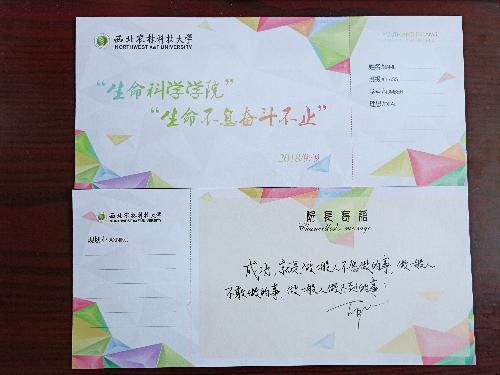 西北农林科技大学
NORTHWEST A&F UNIVERSITY
“生命科学学院”
“生命不息奋斗不止”
2018/9/9
姓名/NAME
班级/CLASS
学号/NUMBER
理想/IDEAL
西北农林科技大学
NORTHWEST A&F UNIVERSITY
规划/PLANNING
院长寄语
Chancellor's message
成功，就是做一般人不愿做的事，做一般人
不敢做的事，做一般人做不到的事！